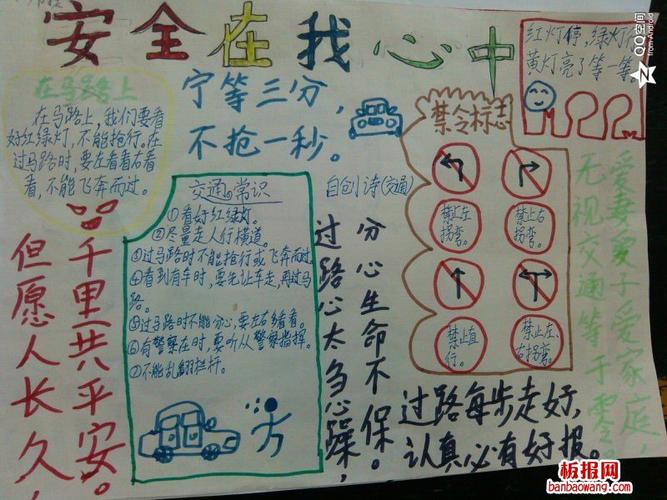 安全在我心中
QQ空间
红灯停,绿灯行
黄灯亮了等一等。
在马路上
在马路上,我们要看
好红绿灯,不能抢行。在
过马路时,要左看看右看
看,不能飞奔而过。
宁等三分,
不抢一秒。
禁令标志
禁止左
拐弯。
禁止右
拐弯。
禁止直
行。
禁止左、
右拐弯。
交通的常识
①看好红绿灯。
②尽量走人行横道。
③过马路时不能抢行或飞奔而过。
④看到有车时,要先让车走,再过马
路。
⑤过马路时不能分心,要左右多看看。
⑥有警察在时,要听从警察指挥。
⑦不能乱翻栏杆。
自创诗(交通)
过路心太急心躁,
分心生命不保。
过路每步走好,
认真必有好报。
爱妻爱子爱家庭,
无视交通等于零
但愿人长久,
千里共平安。
板报网
banbaowang.com